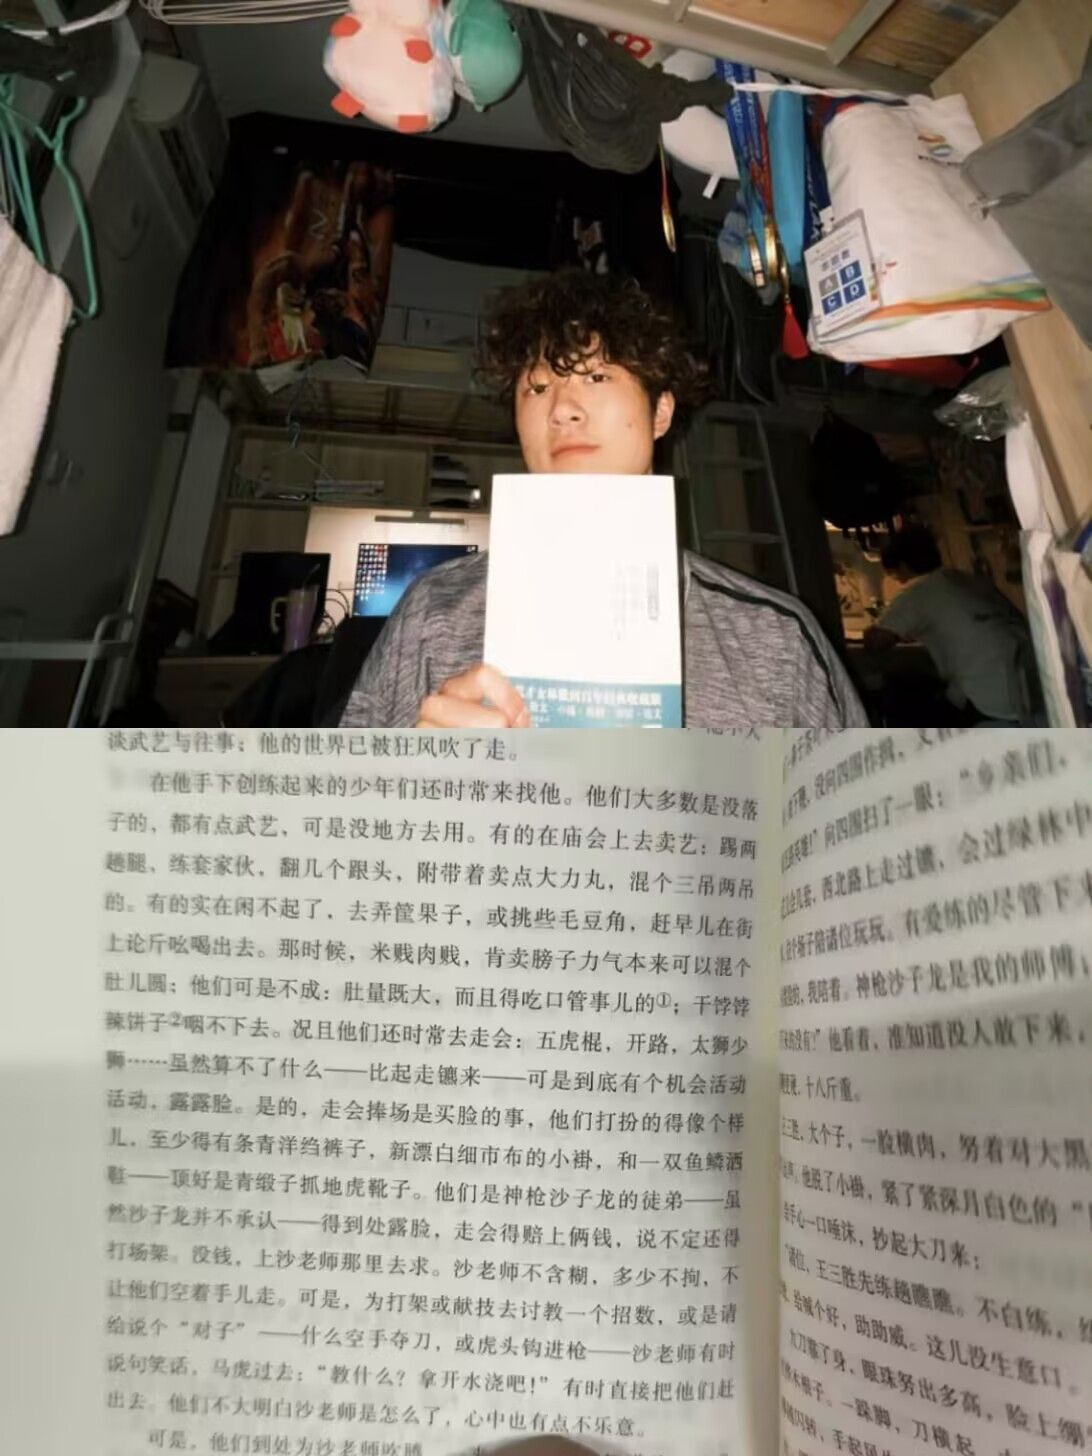 志愿者
A B
C D
才女林徽因百年经典收藏版
谈武艺与往事；他的世界已被狂风吹了走。
在他手下创练起来的少年们还时常来找他。他们大多数是没落
子的，都有点武艺，可是没地方去用。有的在庙会上去卖艺：踢两
趟腿，练套家伙，翻几个跟头，附带着卖点大力丸，混个三吊两吊
的。有的实在闲不起了，去弄筐果子，或挑些毛豆角，赶早儿在街
上论斤吆喝出去。那时候，米贱肉贱，肯卖膀子力气本来可以混个
肚儿圆；他们可是不成：肚量既大，而且得吃口管事儿的①；干饽饽
辣饼子②咽不下去。况且他们还时常去走会：五虎棍，开路，太狮少
狮……虽然算不了什么——比起走镳来——可是到底有个机会活动
活动，露露脸。是的，走会捧场是买脸的事，他们打扮的得像个样
儿，至少得有条青洋绉裤子，新漂白细市布的小褂，和一双鱼鳞洒
鞋——顶好是青缎子抓地虎靴子。他们是神枪沙子龙的徒弟——虽
然沙子龙并不承认——得到处露脸，走会得赔上俩钱，说不定还得
打场架。没钱，上沙老师那里去求。沙老师不含糊，多少不拘，不
让他们空着手儿走。可是，为打架或献技去讨教一个招数，或是请
给说个“对子”——什么空手夺刀，或虎头钩进枪——沙老师有时
说句笑话，马虎过去：“教什么？拿开水浇吧！”有时直接把他们赶
出去。他们不大明白沙老师是怎么了，心中也有点不乐意。
可是，他们到处为沙老师吹腾
没向四围作揖，
向四围扫了一眼：“乡亲们，
西北路上走过镳，会过绿林中
场子陪诸位玩玩。有爱练的尽管下
我陪着。神枪沙子龙是我的师傅；
他看着，准知道没人敢下来，
十八斤重。
王三胜，大个子，一脸横肉，努着对大黑
他脱了小褂，紧了紧深月白色的“
手心一口唾沫，抄起大刀来：
“诸位，王三胜先练趟瞧瞧。不白练，
给喊个好，助助威。这儿没生意口。
大刀靠了身，眼珠努出多高，脸上绷
一跺脚，刀横起
闪转，手起风生